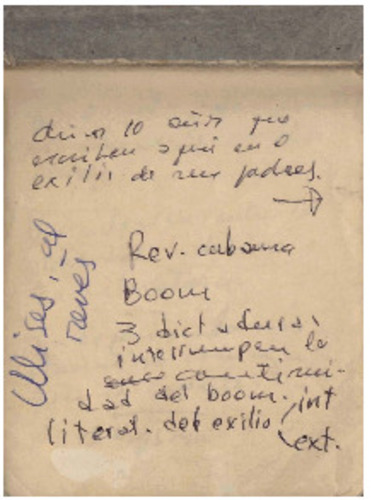 10 años que
escriben aquí en el
exilio de sus padres.
→
Rev. cubana
Boom
3 dictaduras
interrumpen la
continui-
dad del boom.
literat. del exilio int
ext.
Ulises, al
revés